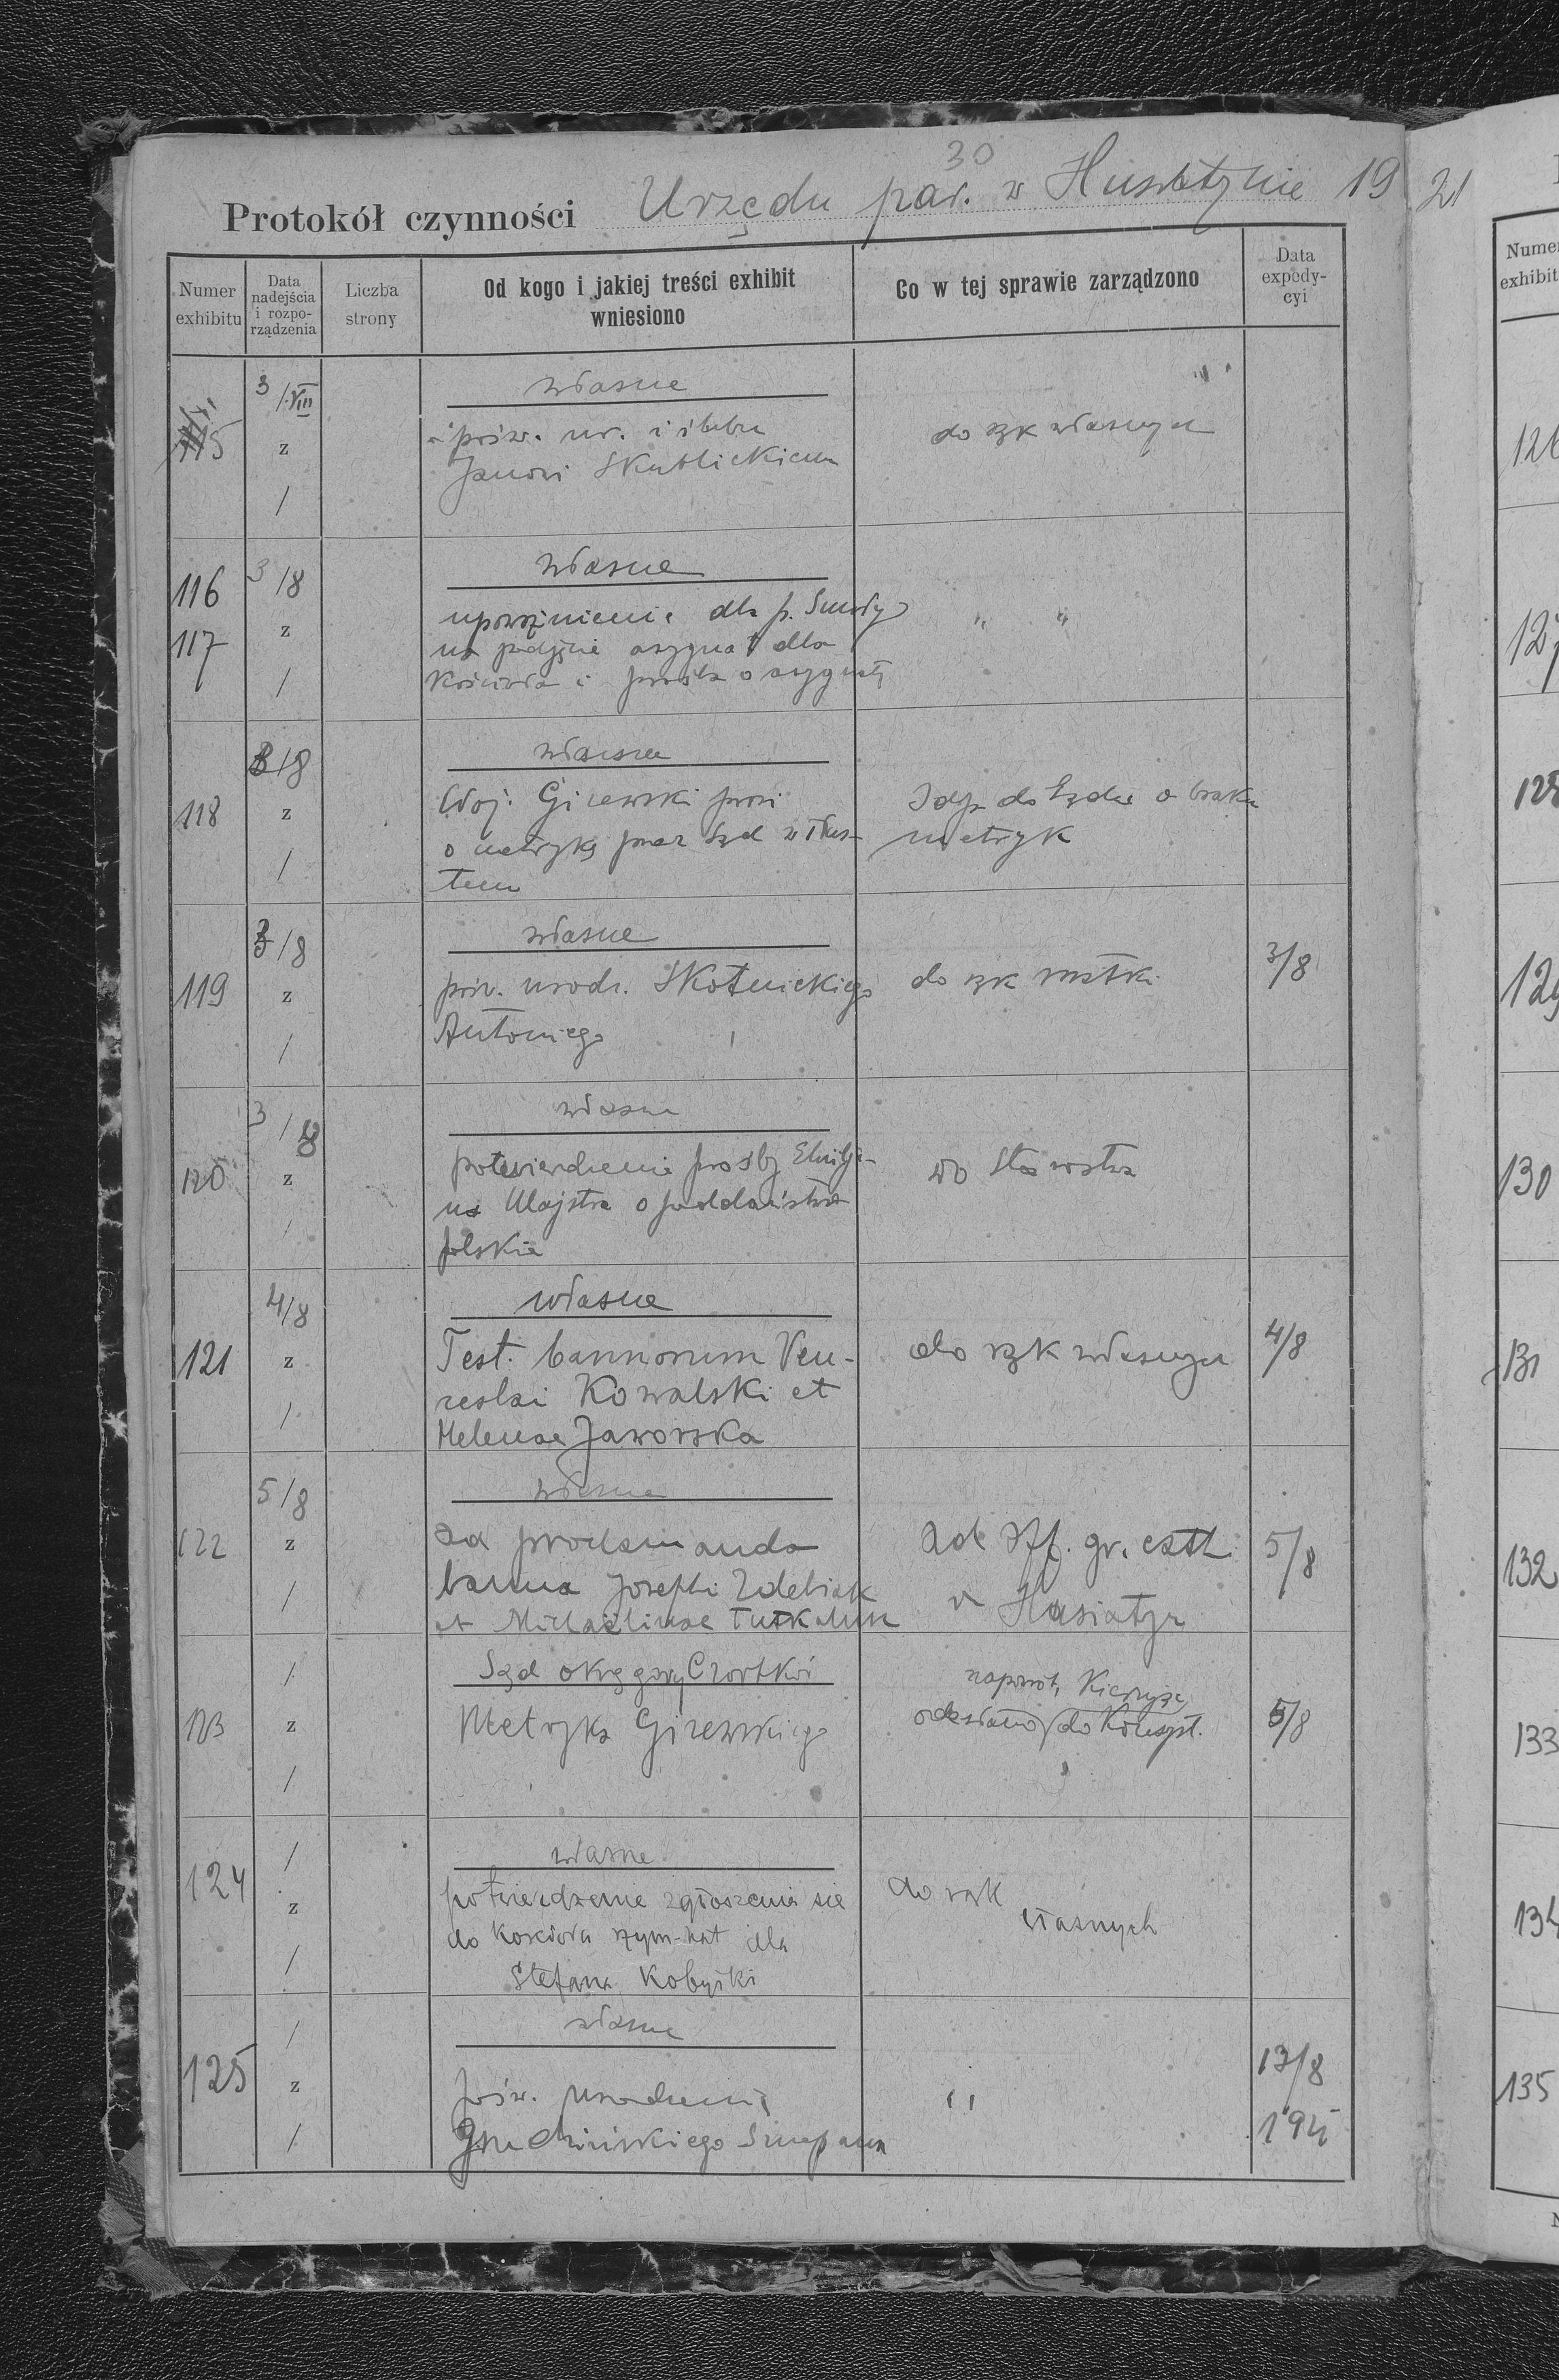 30
Protokół czynności Urzędu par. w Husiatynie 19 21
Numer exhibitu
Data nadejścia i rozporządzenia
Liczba strony
Od kogo i jakiej treści exhibit wniesiono
Co w tej sprawie zarządzono
Data expedycyi
115 3/VIII z / własne
pośw. ur. i ślubu
Janowi
do rąk własnych
116 3/8 własne
117 z / upoważnienie dla p.
na podjęcie asygnat dla
kościoła i prośba o asygnaty
" "
118 3/8 z / własne
Woj. Girewski prosi
o metrykę przez Sąd w Tłus-
tem
Odp. do Sądu o braku
metryk
119 3/8 z / własne
pośw. urodz. Skotnickiego
Antoniego
do rąk matki
3/8
120 3/8 z / własne
potwierdzenie prośby
Majstra o poddaństwo
polskie
do Starostwa
121 4/8 z / własne
Test. bannorum Ven-
ceslai Kowalski et
Helenae Jaworska
do rąk własnych
4/8
122 5/8 z / własne
ad proclamanda
banna Josephi Zdebiak
et Michaelinae
ad Off. gr. cath.
w Husiatyn
5/8
123 / z / Sąd okręgowy Czortków
Metryka Girewskiego
napowrót,
odesłano do
5/8
124 / z / własne
potwierdzenie zgłoszenia się
do kościoła rzym-kat dla
Stefana Kobyłki
do rąk
własnych
125 / z / własne
pośw. urodzenia
Szczepana
"
13/8
1921
Numer
exhibit
126
127
128
129
130
131
132
133
134
135